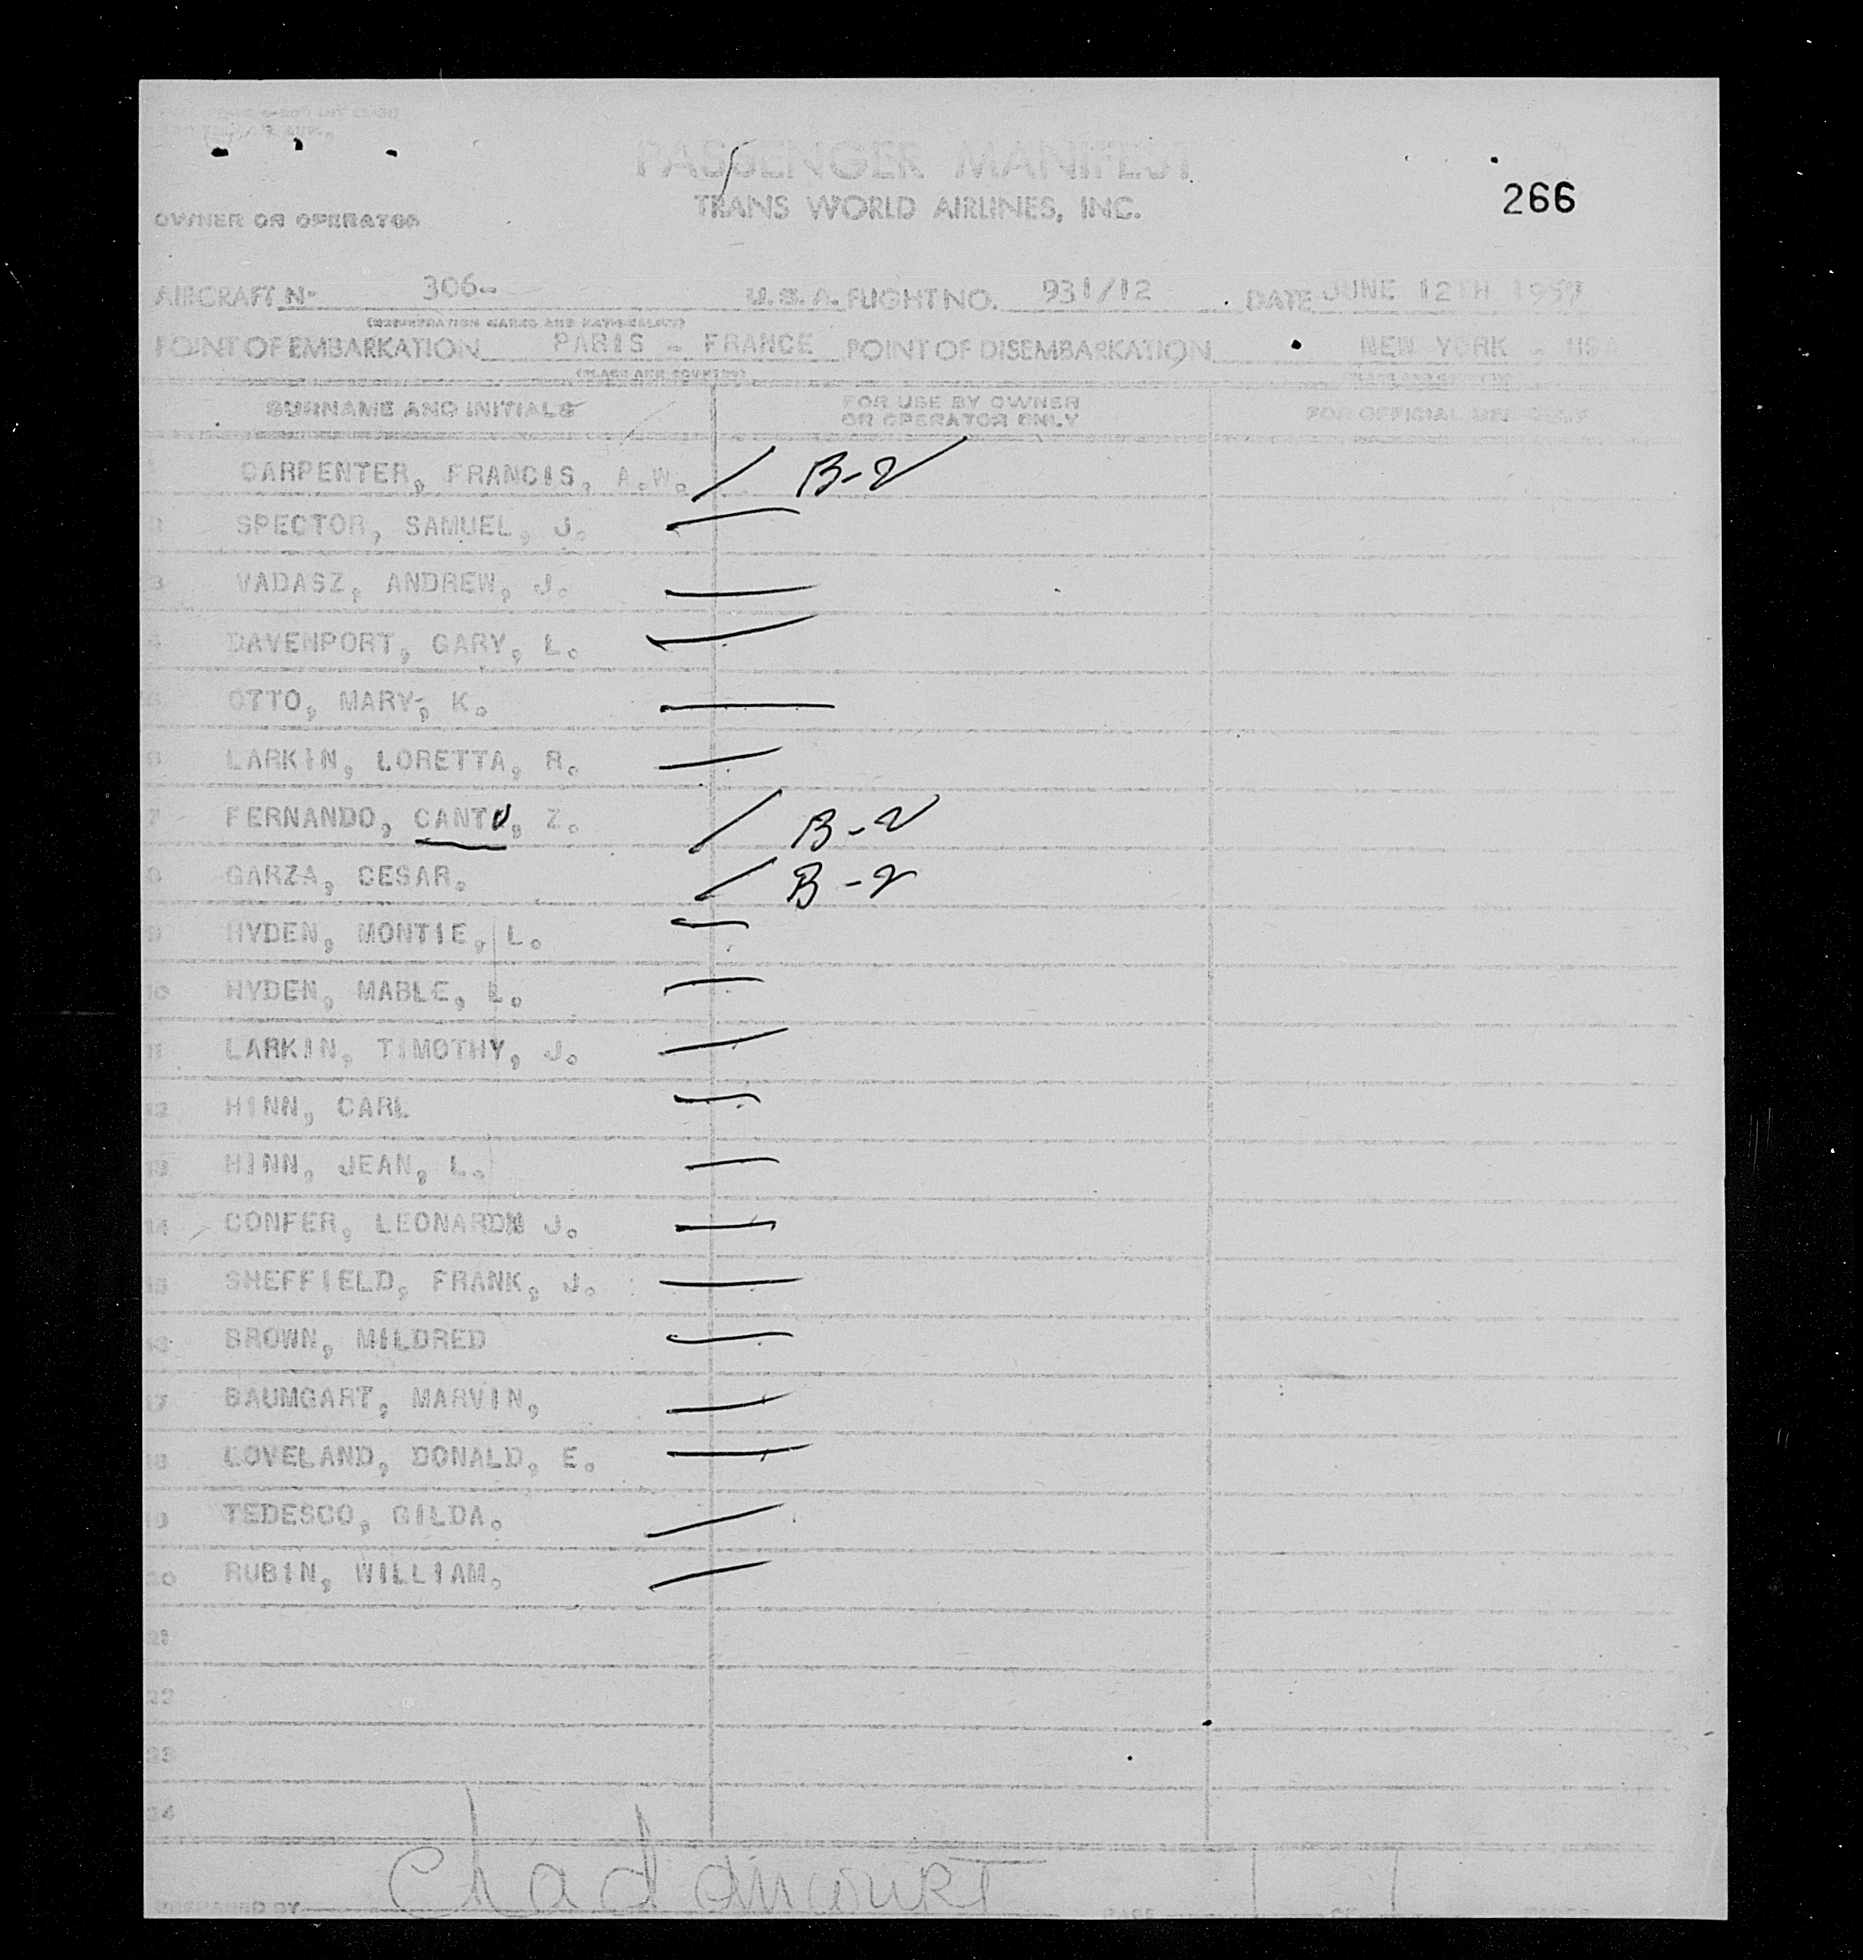 PASSENGER MANIFEST
266
TRANS WORLD AIRLINES, INC.
OWNER OR OPERATOR
AIRCRAFT Nº 306- U.S.A. FLIGHT NO. 931/12 DATE JUNE 12TH 1957
(REGISTRATION MARKS AND NATIONALITY)
POINT OF EMBARKATION PARIS - FRANCE POINT OF DISEMBARKATION NEW YORK - USA
(PLACE AND COUNTRY)
SURNAME AND INITIALS FOR USE BY OWNER OR OPERATOR ONLY FOR OFFICIAL USE ONLY
CARPENTER, FRANCIS, A.W. B-2
SPECTOR, SAMUEL, J.
3 VADASZ, ANDREW, J.
4 DAVENPORT, GARY, L.
OTTO, MARY-, K.
6 LARKIN, LORETTA, R.
7 FERNANDO, CANTU, Z. B-2
8 GARZA, CESAR. B-2
9 HYDEN, MONTIE, L.
10 HYDEN, MABLE, L.
11 LARKIN, TIMOTHY, J.
12 HINN, CARL
13 HINN, JEAN, L.
14 CONFER, LEONARD J.
15 SHEFFIELD, FRANK, J.
16 BROWN, MILDRED
17 BAUMGART, MARVIN,
18 LOVELAND, DONALD, E.
19 TEDESCO, GILDA.
20 RUBIN, WILLIAM.
21
22
23
24
PREPARED BY PAGE 1 OF 1